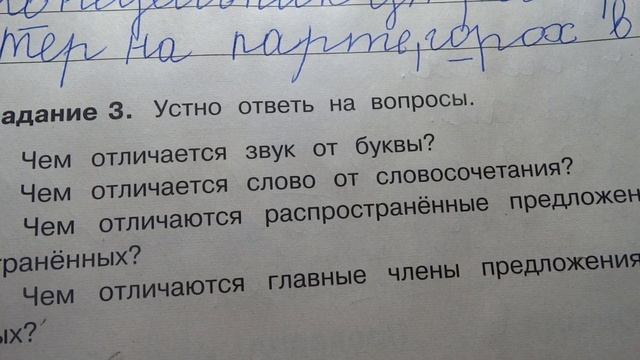 тер на парте, горох в
адание 3. Устно ответь на вопросы.
Чем отличается звук от буквы?
Чем отличается слово от словосочетания?
Чем отличаются распространённые предложен
транённых?
Чем отличаются главные члены предложения
ых?